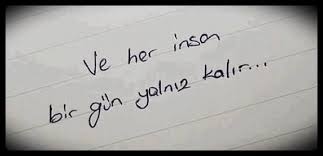 Ve her insan
bir gün yalnız kalır...